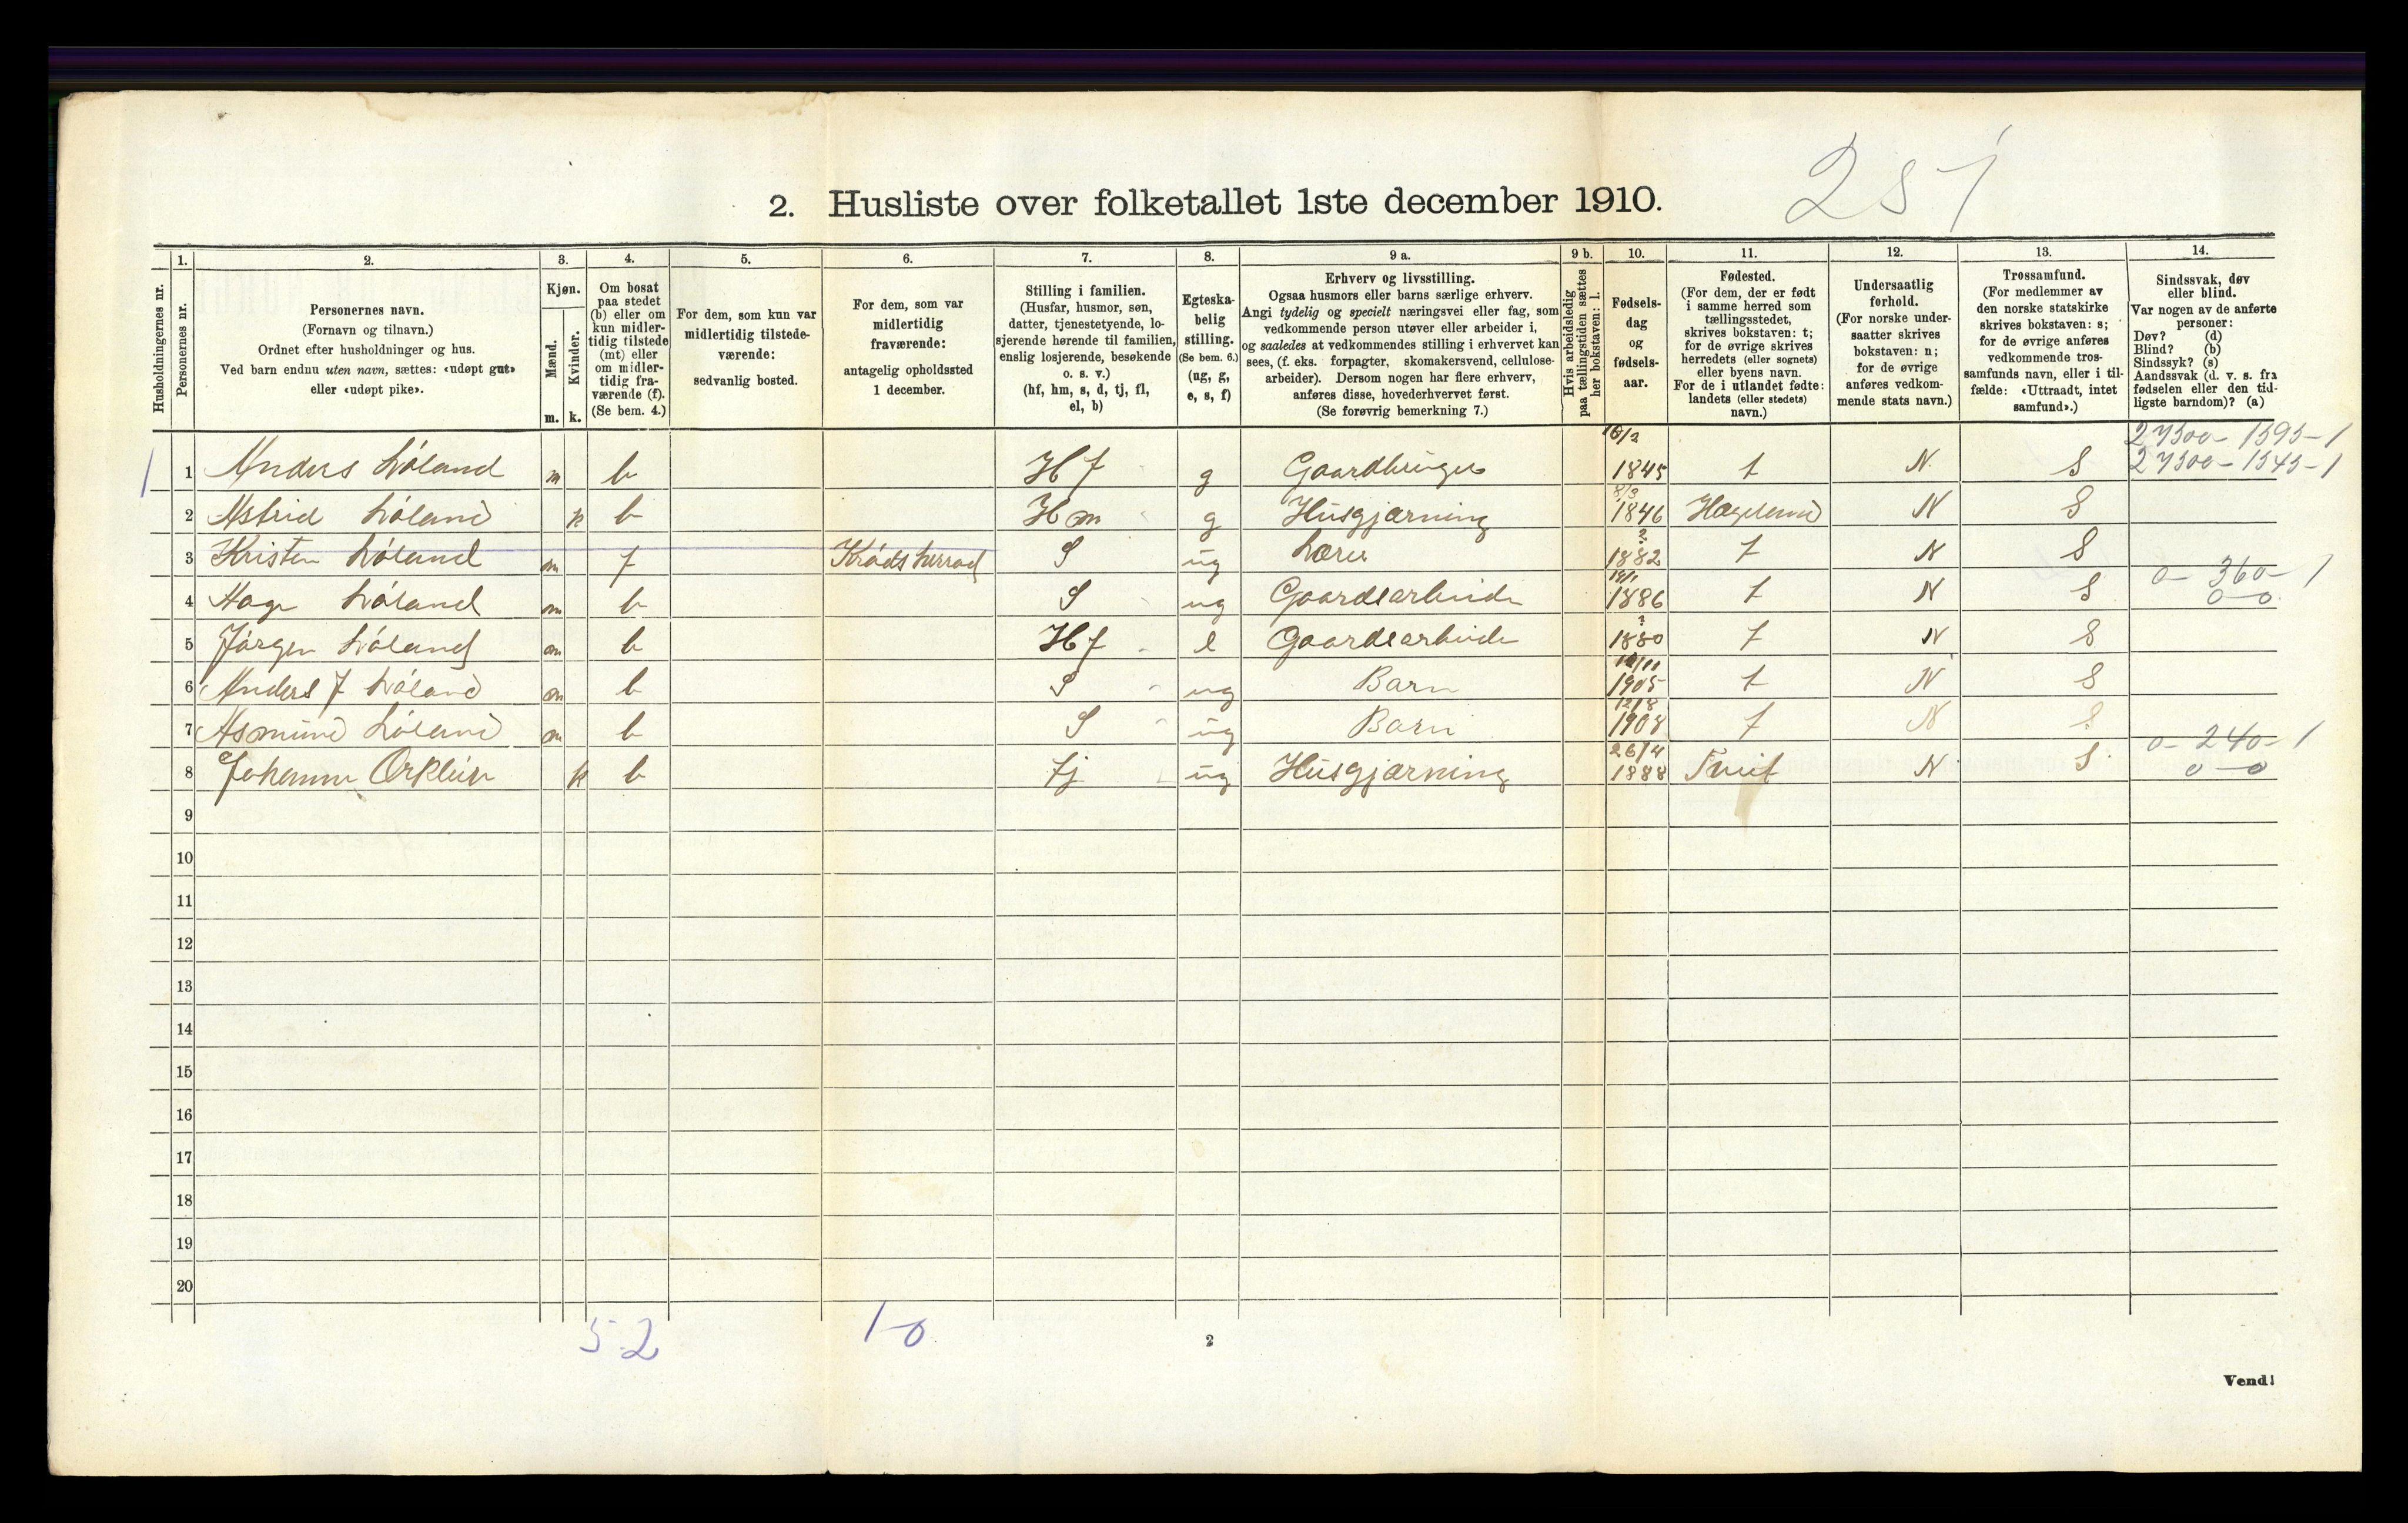 251
2. Husliste over folketallet 1ste december 1910.
Husholdningernes nr.
1.
Personernes nr.
2.
Personernes navn.
(Fornavn og tilnavn.)
Ordnet efter husholdninger og hus.
Ved barn endnu uten navn, sættes: «udøpt gut»
eller «udøpt pike».
3.
Kjøn.
Mænd.
Kvinder.
m. k.
4.
Om bosat
paa stedet
(b) eller om
kun midler-
tidig tilstede
(mt) eller
om midler-
tidig fra-
værende (f).
(Se bem. 4.)
5.
For dem, som kun var
midlertidig tilstede-
værende:
sedvanlig bosted.
6.
For dem, som var
midlertidig
fraværende:
antagelig opholdssted
1 december.
7.
Stilling i familien.
(Husfar, husmor, søn,
datter, tjenestetyende, lo-
sjerende hørende til familien,
enslig losjerende, besøkende
o. s. v.)
(hf, hm, s, d, tj, fl,
el, b)
8.
Egteska-
belig
stilling.
(Se bem. 6.)
(ug, g,
e, s, f)
9 a.
Erhverv og livsstilling.
Ogsaa husmors eller barns særlige erhverv.
Angi tydelig og specielt næringsvei eller fag, som
vedkommende person utøver eller arbeider i,
og saaledes at vedkommendes stilling i erhvervet kan
sees, (f. eks. forpagter, skomakersvend, cellulose-
arbeider). Dersom nogen har flere erhverv,
anføres disse, hovederhvervet først.
(Se forøvrig bemerkning 7.)
9 b.
Hvis arbeidsledig
paa tællingstiden sættes
her bokstaven: l.
10.
Fødsels-
dag
og
fødsels-
aar.
11.
Fødested.
(For dem, der er født
i samme herred som
tællingsstedet,
skrives bokstaven: t;
for de øvrige skrives
herredets (eller sognets)
eller byens navn.
For de i utlandet fødte:
landets (eller stedets)
navn.)
12.
Undersaatlig
forhold.
(For norske under-
saatter skrives
bokstaven: n;
for de øvrige
anføres vedkom-
mende stats navn.)
13.
Trossamfund.
(For medlemmer av
den norske statskirke
skrives bokstaven: s;
for de øvrige anføres
vedkommende tros-
samfunds navn, eller i til-
fælde: «Uttraadt, intet
samfund».)
14.
Sindssvak, døv
eller blind.
Var nogen av de anførte
personer:
Døv? (d)
Blind? (b)
Sindssyk? (s)
Aandssvak (d. v. s. fra
fødselen eller den tid-
ligste barndom)? (a)
1 1 Anders Løland m b Hf g Gaardbruger 1845 t N S
2 Astrid Løland k b Hm g Husgjærning 8/3 1846 Hægeland N S
3 Kristen Løland m f Krødsherrad S ug Lærer ? 1882 t N S
4 Aage Løland m b S ug Gaardsarbeider 1886 t N S 0- 360- 1
0-0
5 Jørgen Løland m b Hf e Gaardsarbeider ? 1880 t N S
6 Anders J Løland m b S ug Barn 1905 t N S
7 Asmund Løland m b S ug Barn 12/8 1908 t N S
8 k b Tj ug Husgjærning 26/4 1888 Tveit N S 0- 240- 1
0-0
9
10
11
12
13
14
15
16
17
18
19
20
5 2
1-0
2
Vend!